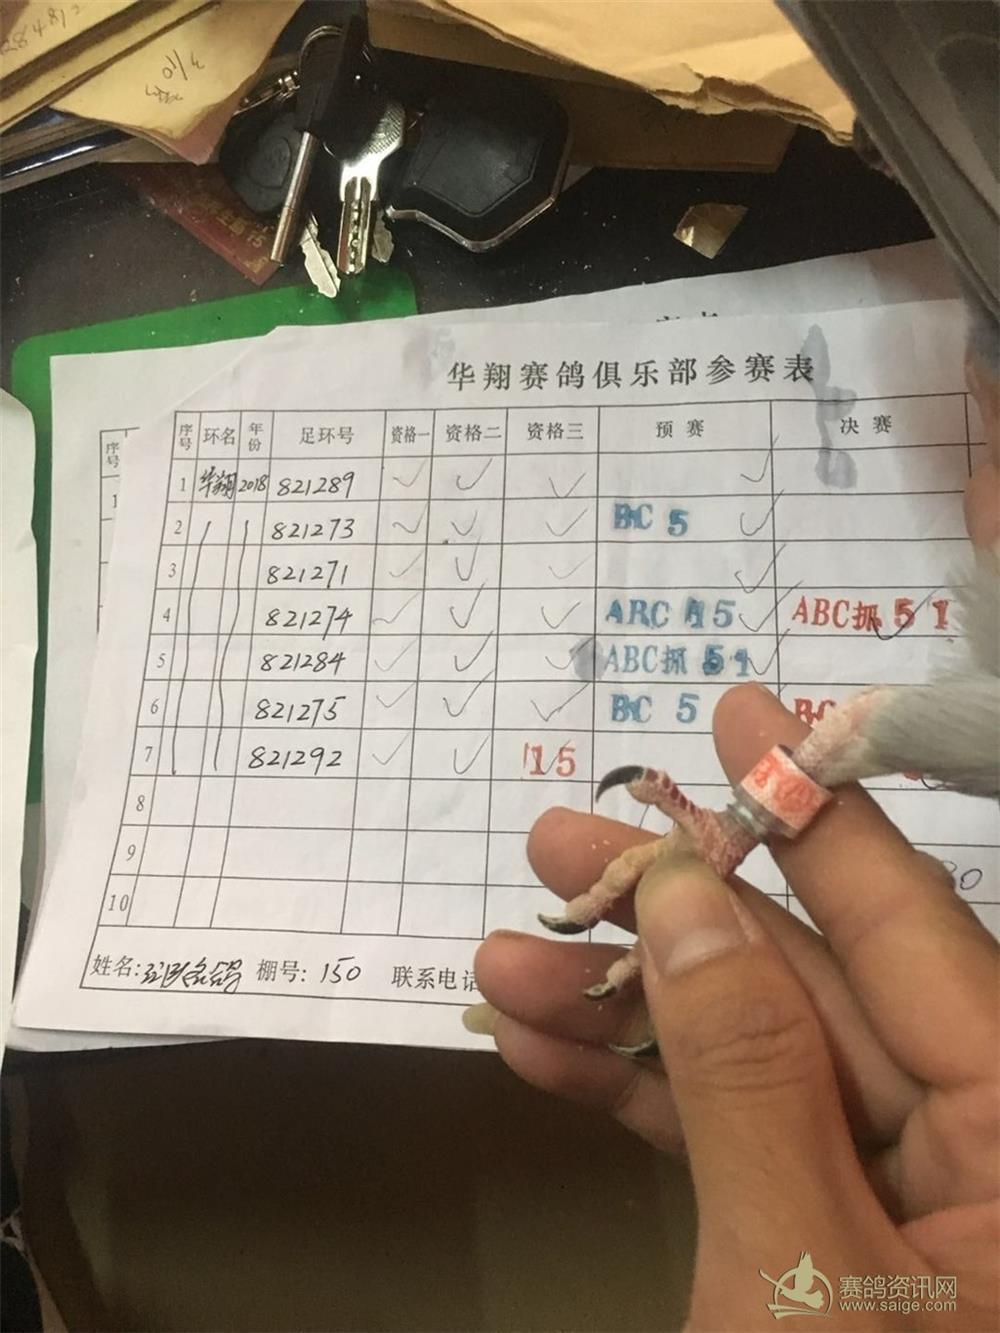 284812
3/10
华翔赛鸽俱乐部参赛表
序号 环名 年份 足环号 资格一 资格二 资格三 预赛 决赛
1 华翔 2018 821289
2 821273 BC 5
3 821271
4 821274 ABC 15 ABC抓 51
5 821284 ABC抓 51
6 821275 BC 5 BC
7 821292 15
8
9
10
姓名: 棚号: 150 联系电话
序号
1
赛鸽资讯网
www.saige.com